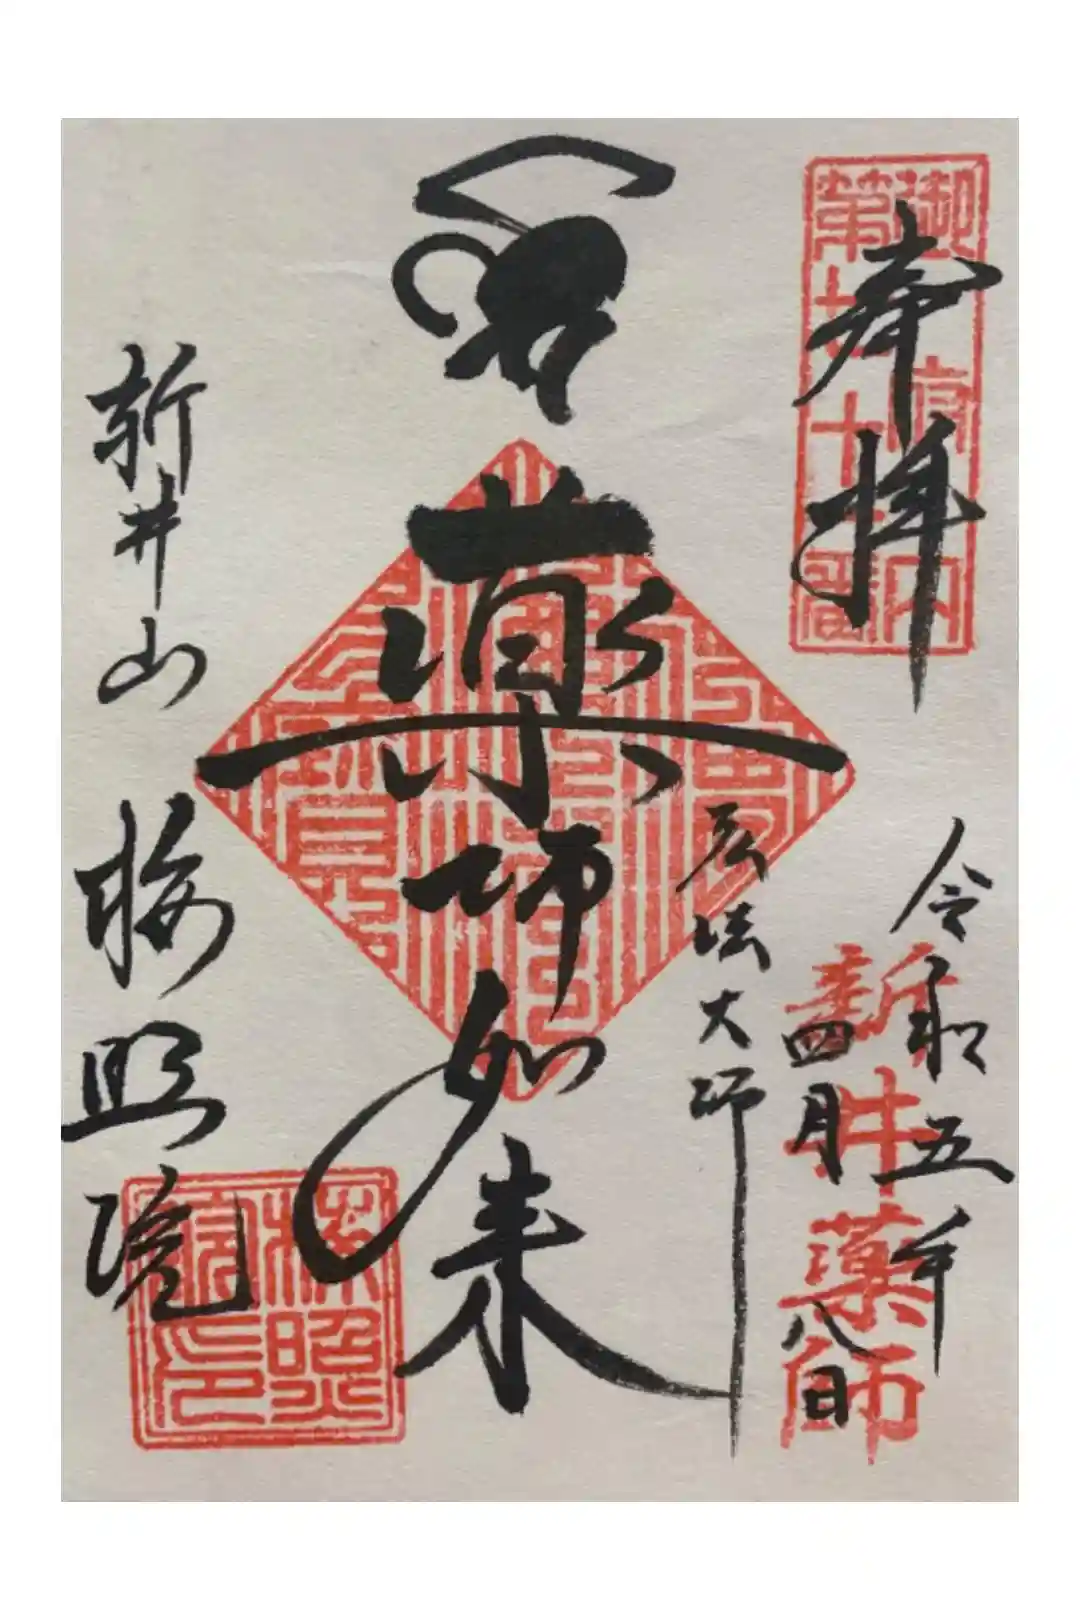 奉拝
御府内
第七十一番
令和五年
四月八日
新井薬師
弘法大師
薬師如来
新井山
梅照院
梅照院印